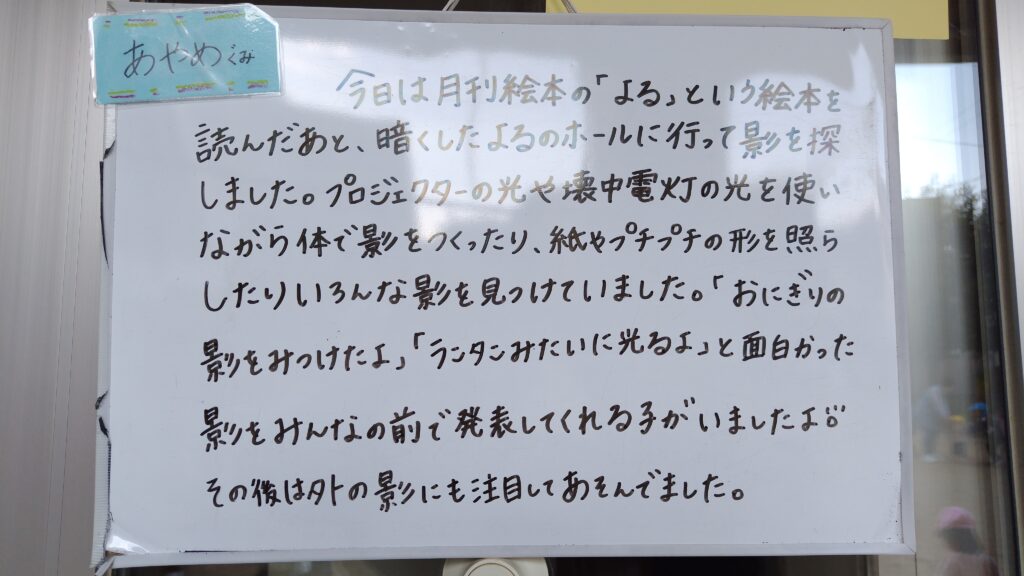 あやめぐみ
今日は月刊絵本の「よる」という絵本を
読んだあと、暗くしたよるのホールに行って影を探
しました。プロジェクターの光や壊中電灯の光を使い
ながら体で影をつくったり、紙やプチプチの形を照ら
したりいろんな影を見つけていました。「おにぎりの
影をみつけたよ」「ランタンみたいに光るよ」と面白かった
影をみんなの前で発表してくれる子がいましたよ。
その後は外の影にも注目してあそんでました。